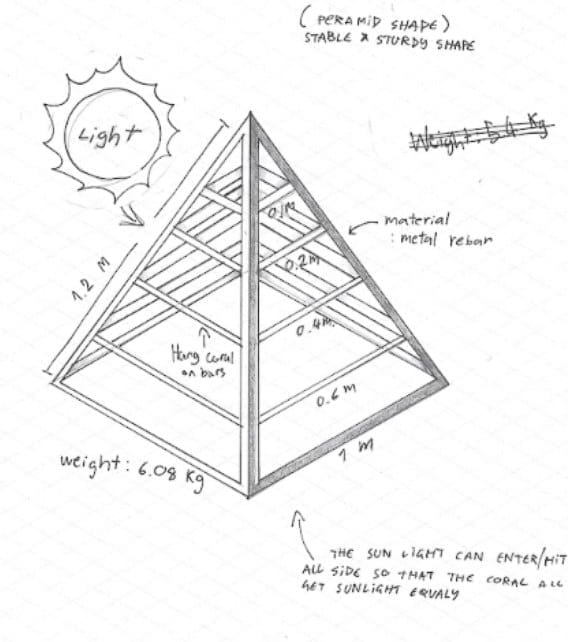 (PERAMID SHAPE)
STABLE & STURDY SHAPE
Light
Weight: 5.4 Kg
material
: metal rebar
0.1M
0.2m
1.2 M
0.4m
Hang coral
on bars
0.6 m
1 m
weight: 6.08 Kg
THE SUN LIGHT CAN ENTER/HIT
ALL SIDE SO THAT THE CORAL ALL
GET SUNLIGHT EQUALY